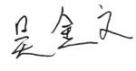 吴金文